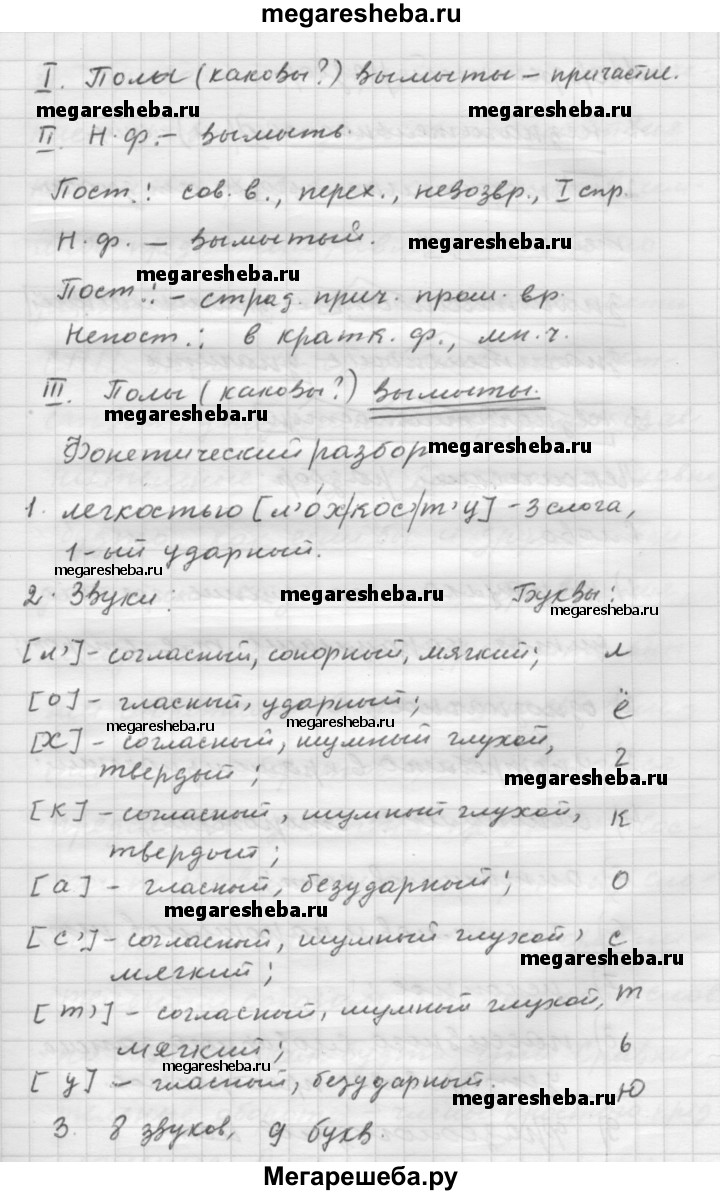 megaresheba.ru
I. Полы (каковы?) вымыты – причастие.
megaresheba.ru megaresheba.ru
II. Н.ф. – вымыть.
Пост.: сов. в., перех., невозвр., I спр.
Н.ф. – вымытый. megaresheba.ru
megaresheba.ru
Пост.: – страд. прич. прош. вр.
Непост.: в кратк. ф., мн.ч.
III. Полы (каковы?) вымыты.
megaresheba.ru
Фонетический разбор megaresheba.ru
1. легкостью [л'óх/кос'/т'у] – 3 слога,
1-ый ударный.
megaresheba.ru
2. Звуки: megaresheba.ru Буквы:
megaresheba.ru
[л'] – согласный, сонорный, мягкий; л
[о] – гласный, ударный; ё
megaresheba.ru megaresheba.ru
[х] – согласный, шумный глухой, г
твердый; megaresheba.ru
[к] – согласный, шумный глухой, к
твердый;
[а] – гласный, безударный; о
megaresheba.ru
[с'] – согласный, шумный глухой, с
мягкий; megaresheba.ru
[т'] – согласный, шумный глухой, т
мягкий; ь
megaresheba.ru
[у] – гласный, безударный. ю
megaresheba.ru
3. 8 звуков, 9 букв.
Мегарешеба.ру